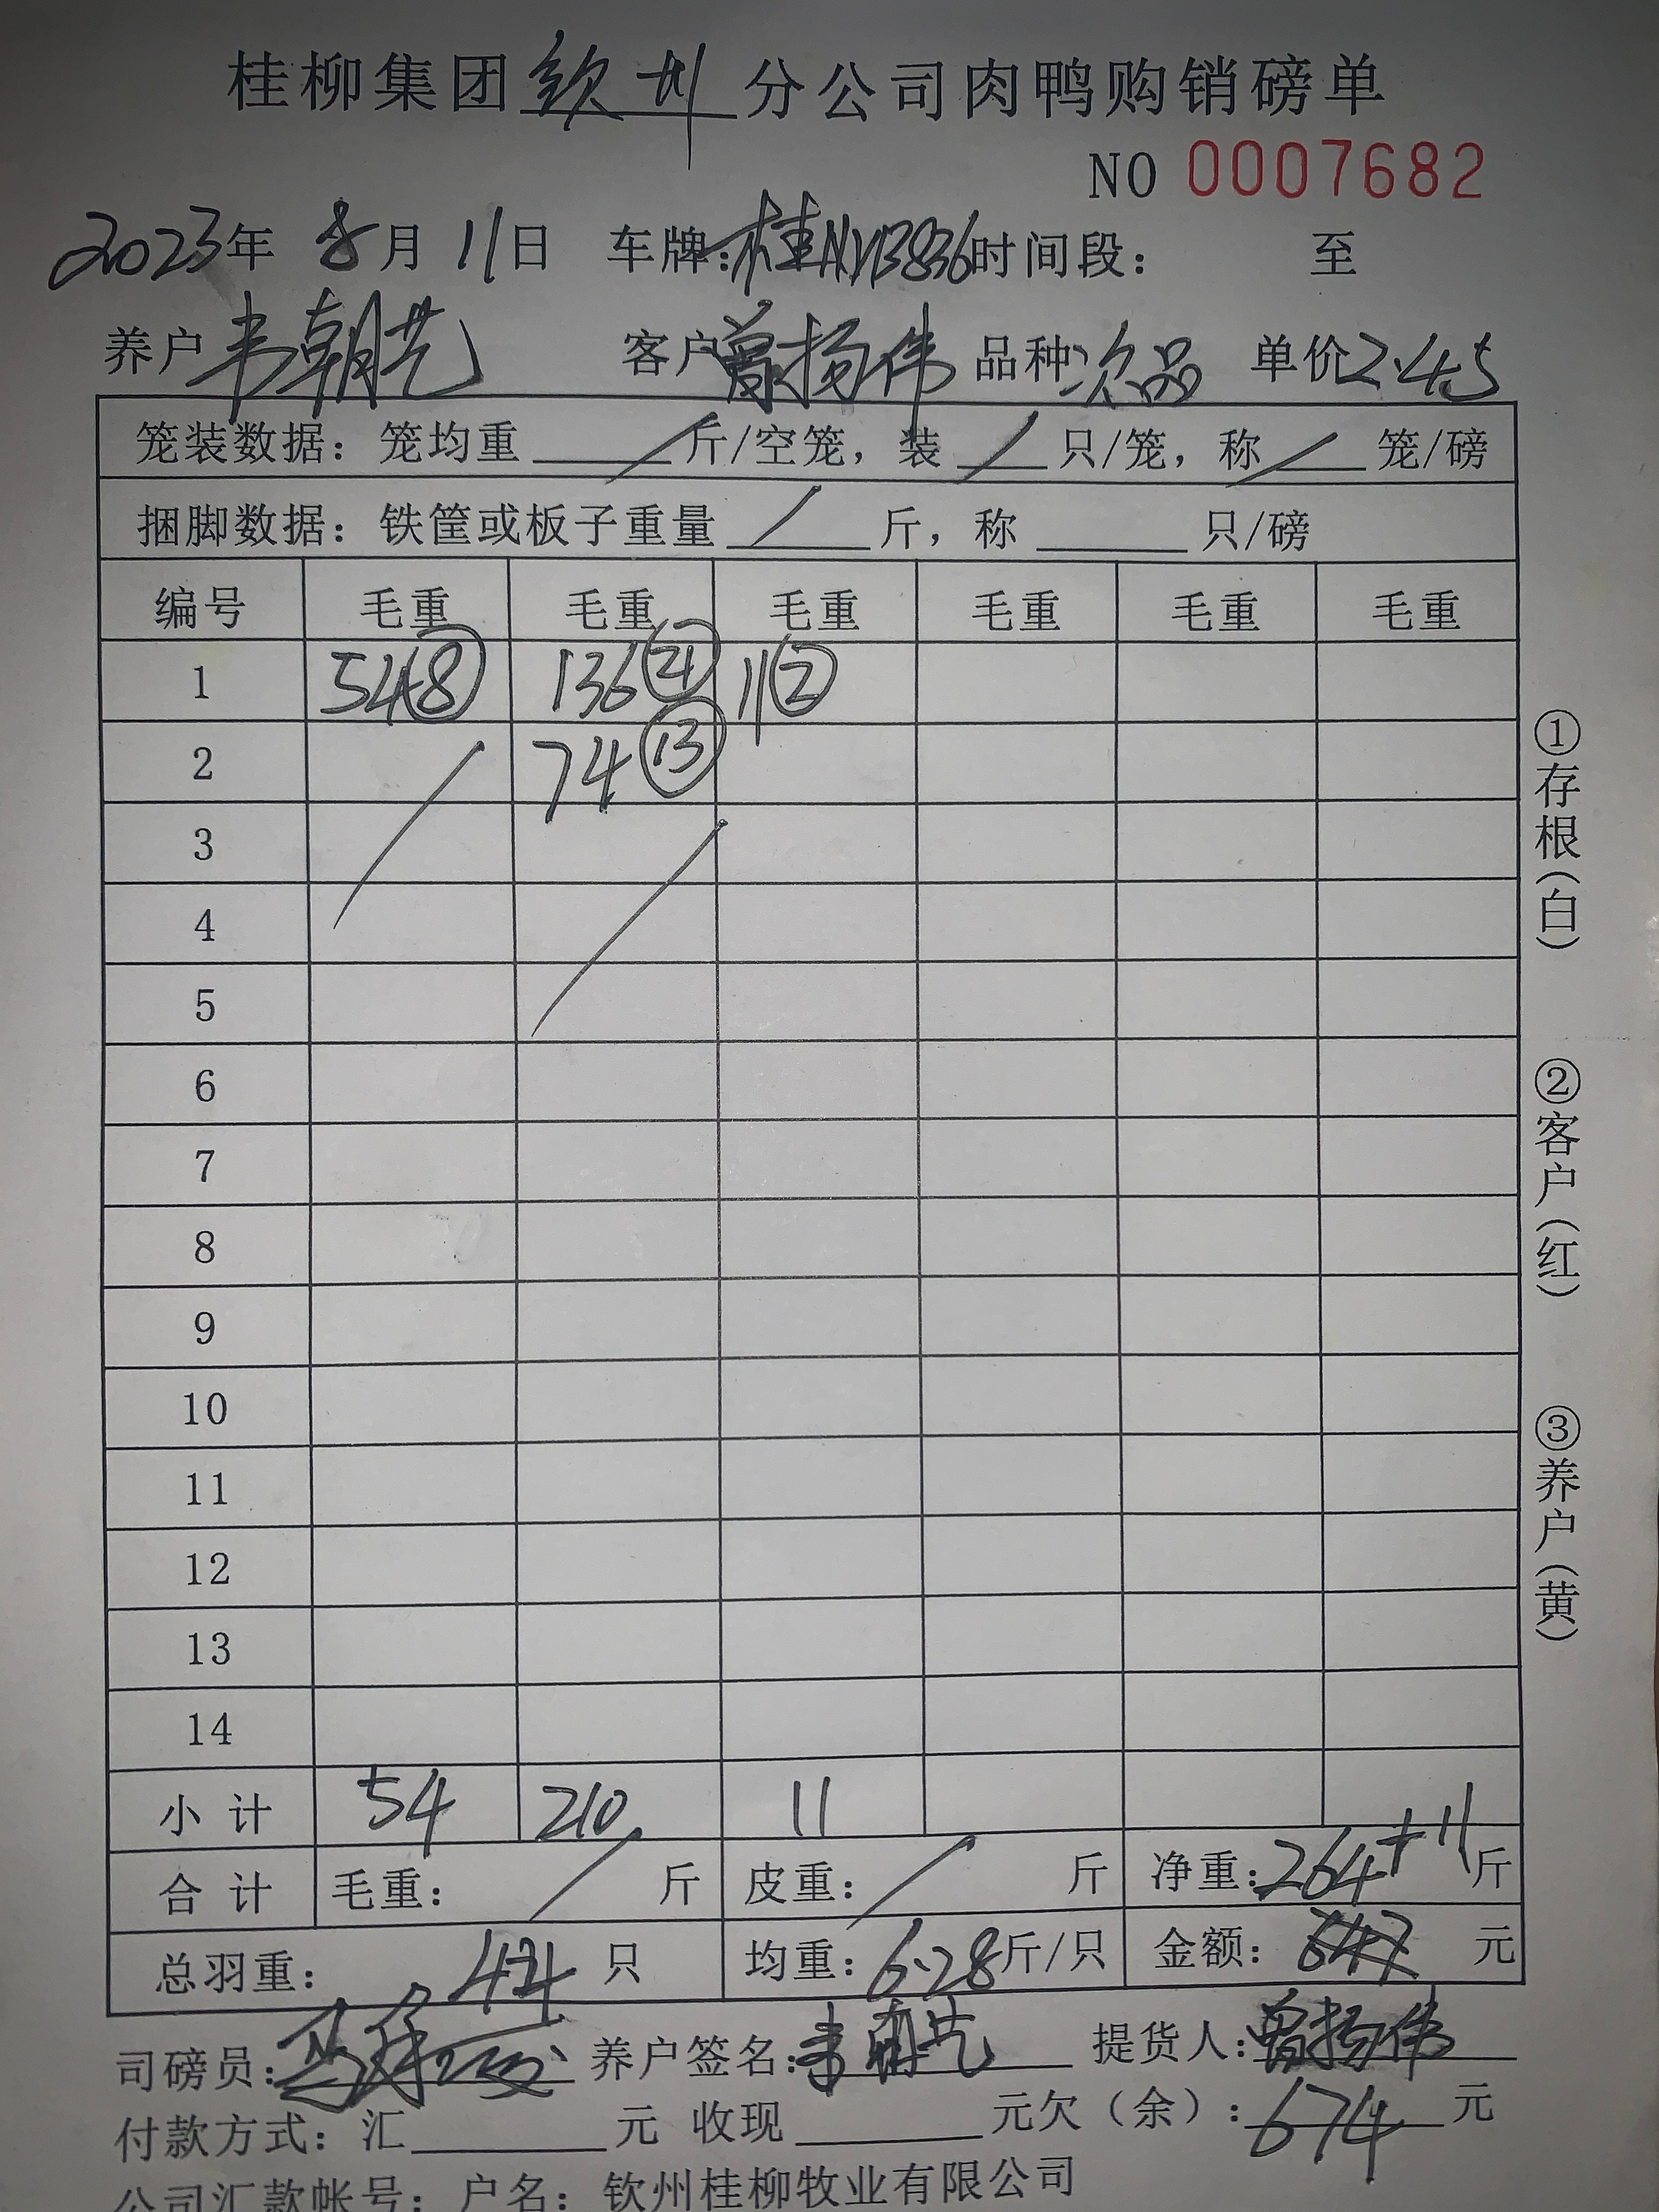 桂柳集团钦州分公司肉鸭购销磅单
NO 0007682
2023年 8月 11日 车牌:桂NYB836时间段: 至
养户韦朝艺 客户曾扬伟 品种次品 单价2.45
笼装数据: 笼均重 / 斤/空笼, 装 / 只/笼, 称 / 笼/磅
捆脚数据: 铁筐或板子重量 / 斤, 称 只/磅
编号 毛重 毛重 毛重 毛重 毛重 毛重
1 54⑧ 136㉑ 11②
2 74⑬
3
4
5
6
7
8
9
10
11
12
13
14
小计 54 210 11
合计 毛重: / 斤 皮重: / 斤 净重:264+11斤
总羽重: 44 只 均重:6.28斤/只 金额: 647 元
司磅员: 养户签名:韦朝艺 提货人:曾扬伟
付款方式: 汇 元 收现 元欠(余):674元
公司汇款帐号: 户名: 钦州桂柳牧业有限公司
①存根(白)
②客户(红)
③养户(黄)